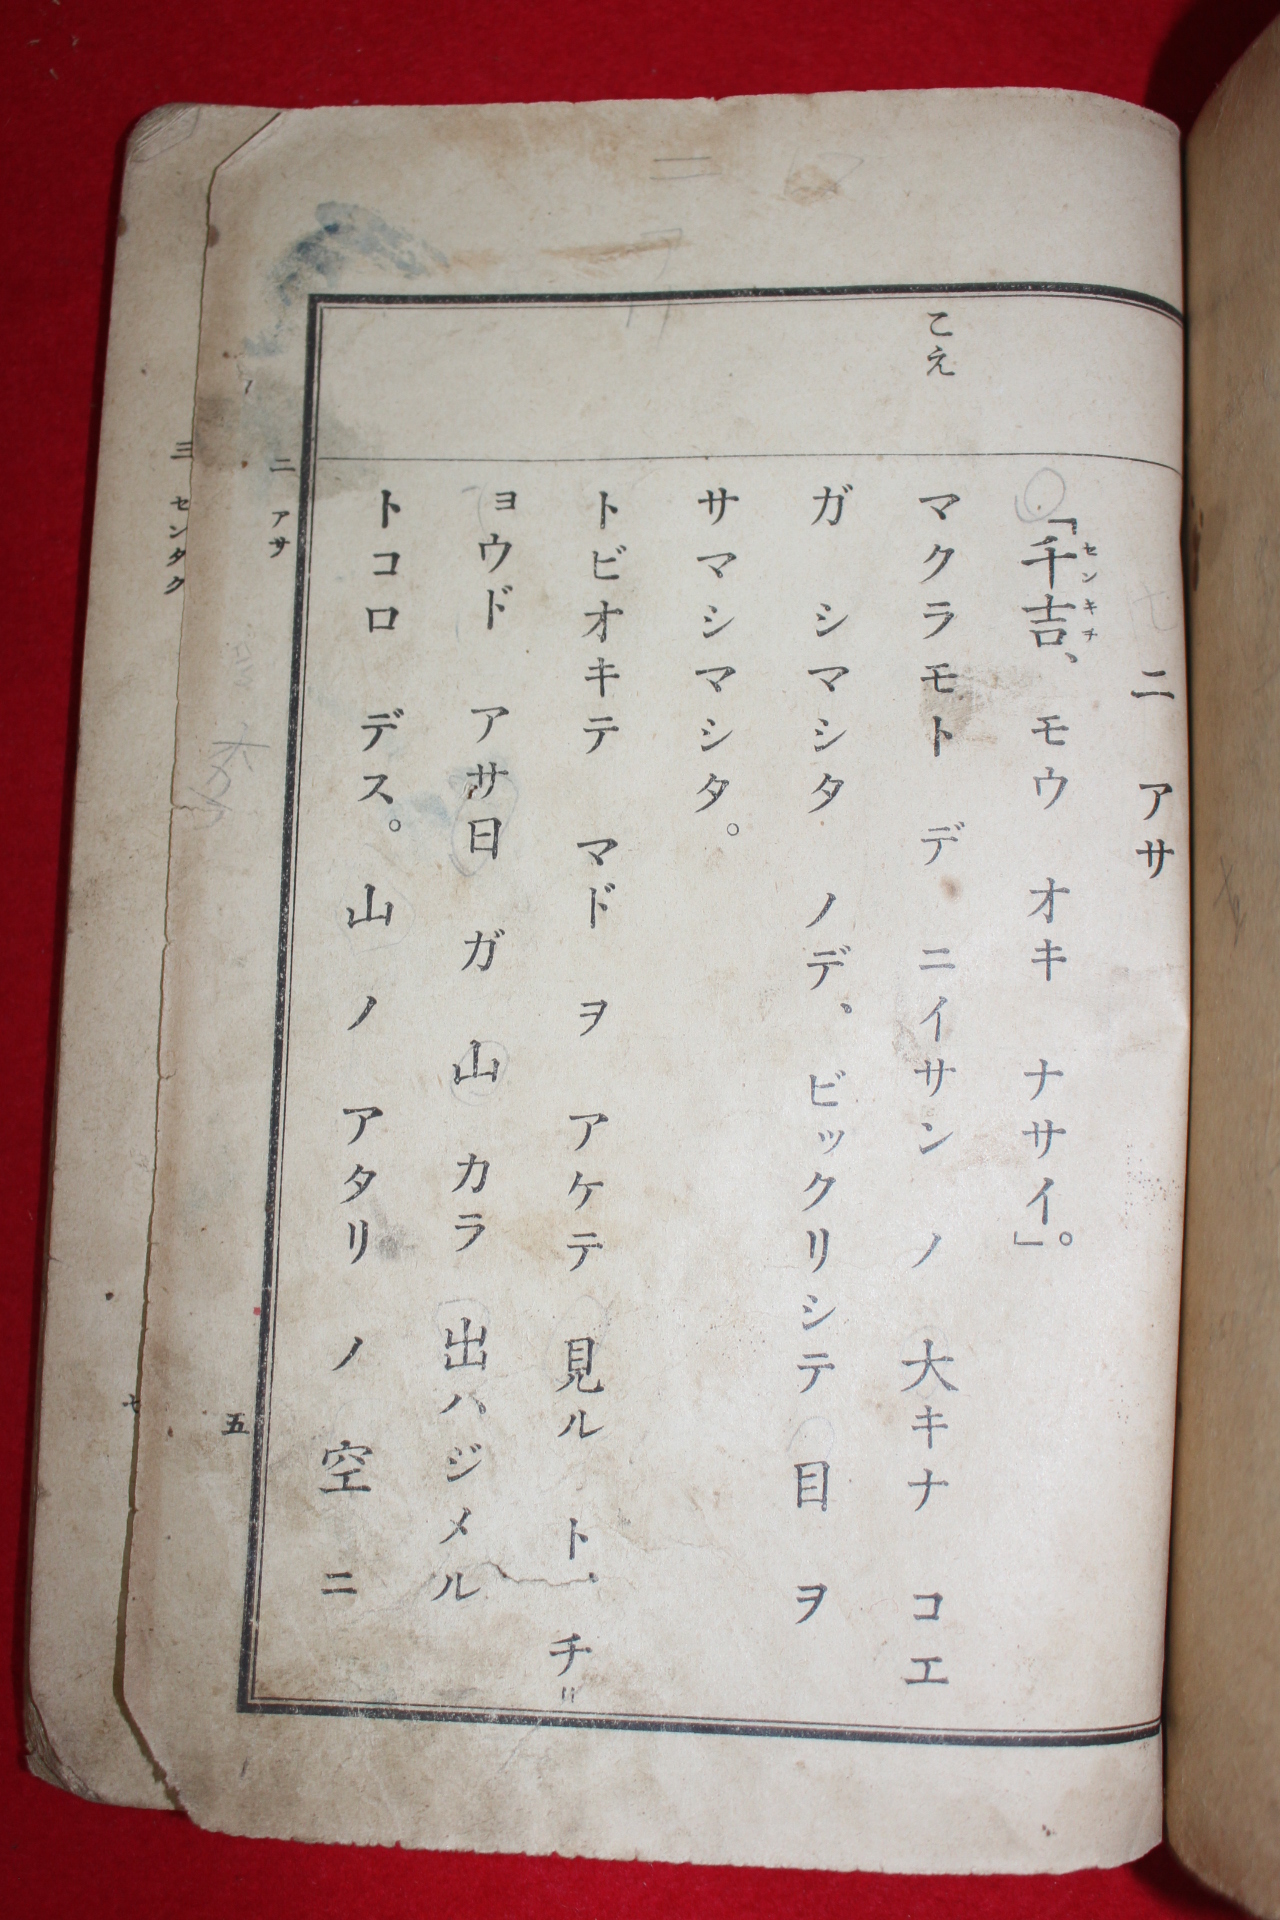 二 アサ
「千吉、モウ オキ ナサイ」。
センキチ
こえ
マクラモト デ ニイサン ノ 大キナ コエ
ガ シマシタ ノデ、ビックリシテ 目 ヲ
サマシマシタ。
トビオキテ マド ヲ アケテ 見ル ト、チ＝
ョウド アサ日 ガ 山 カラ 出ハジメル
トコロ デス。山 ノ アタリ ノ 空 ニ
二 アサ
五
三 センタク
七